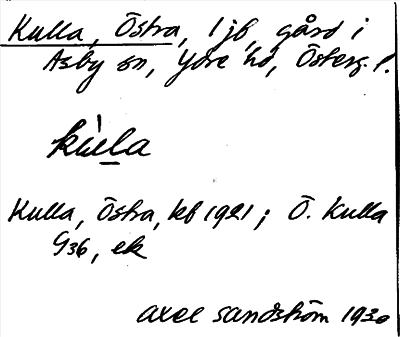 Kulla, Östra, 1 jb, gård i
Asby sn, Ydre hd, Österg. l.
kùla
Kulla, Östra, kb 1921; Ö. Kulla
G36, ek
Axel Sandström 1930